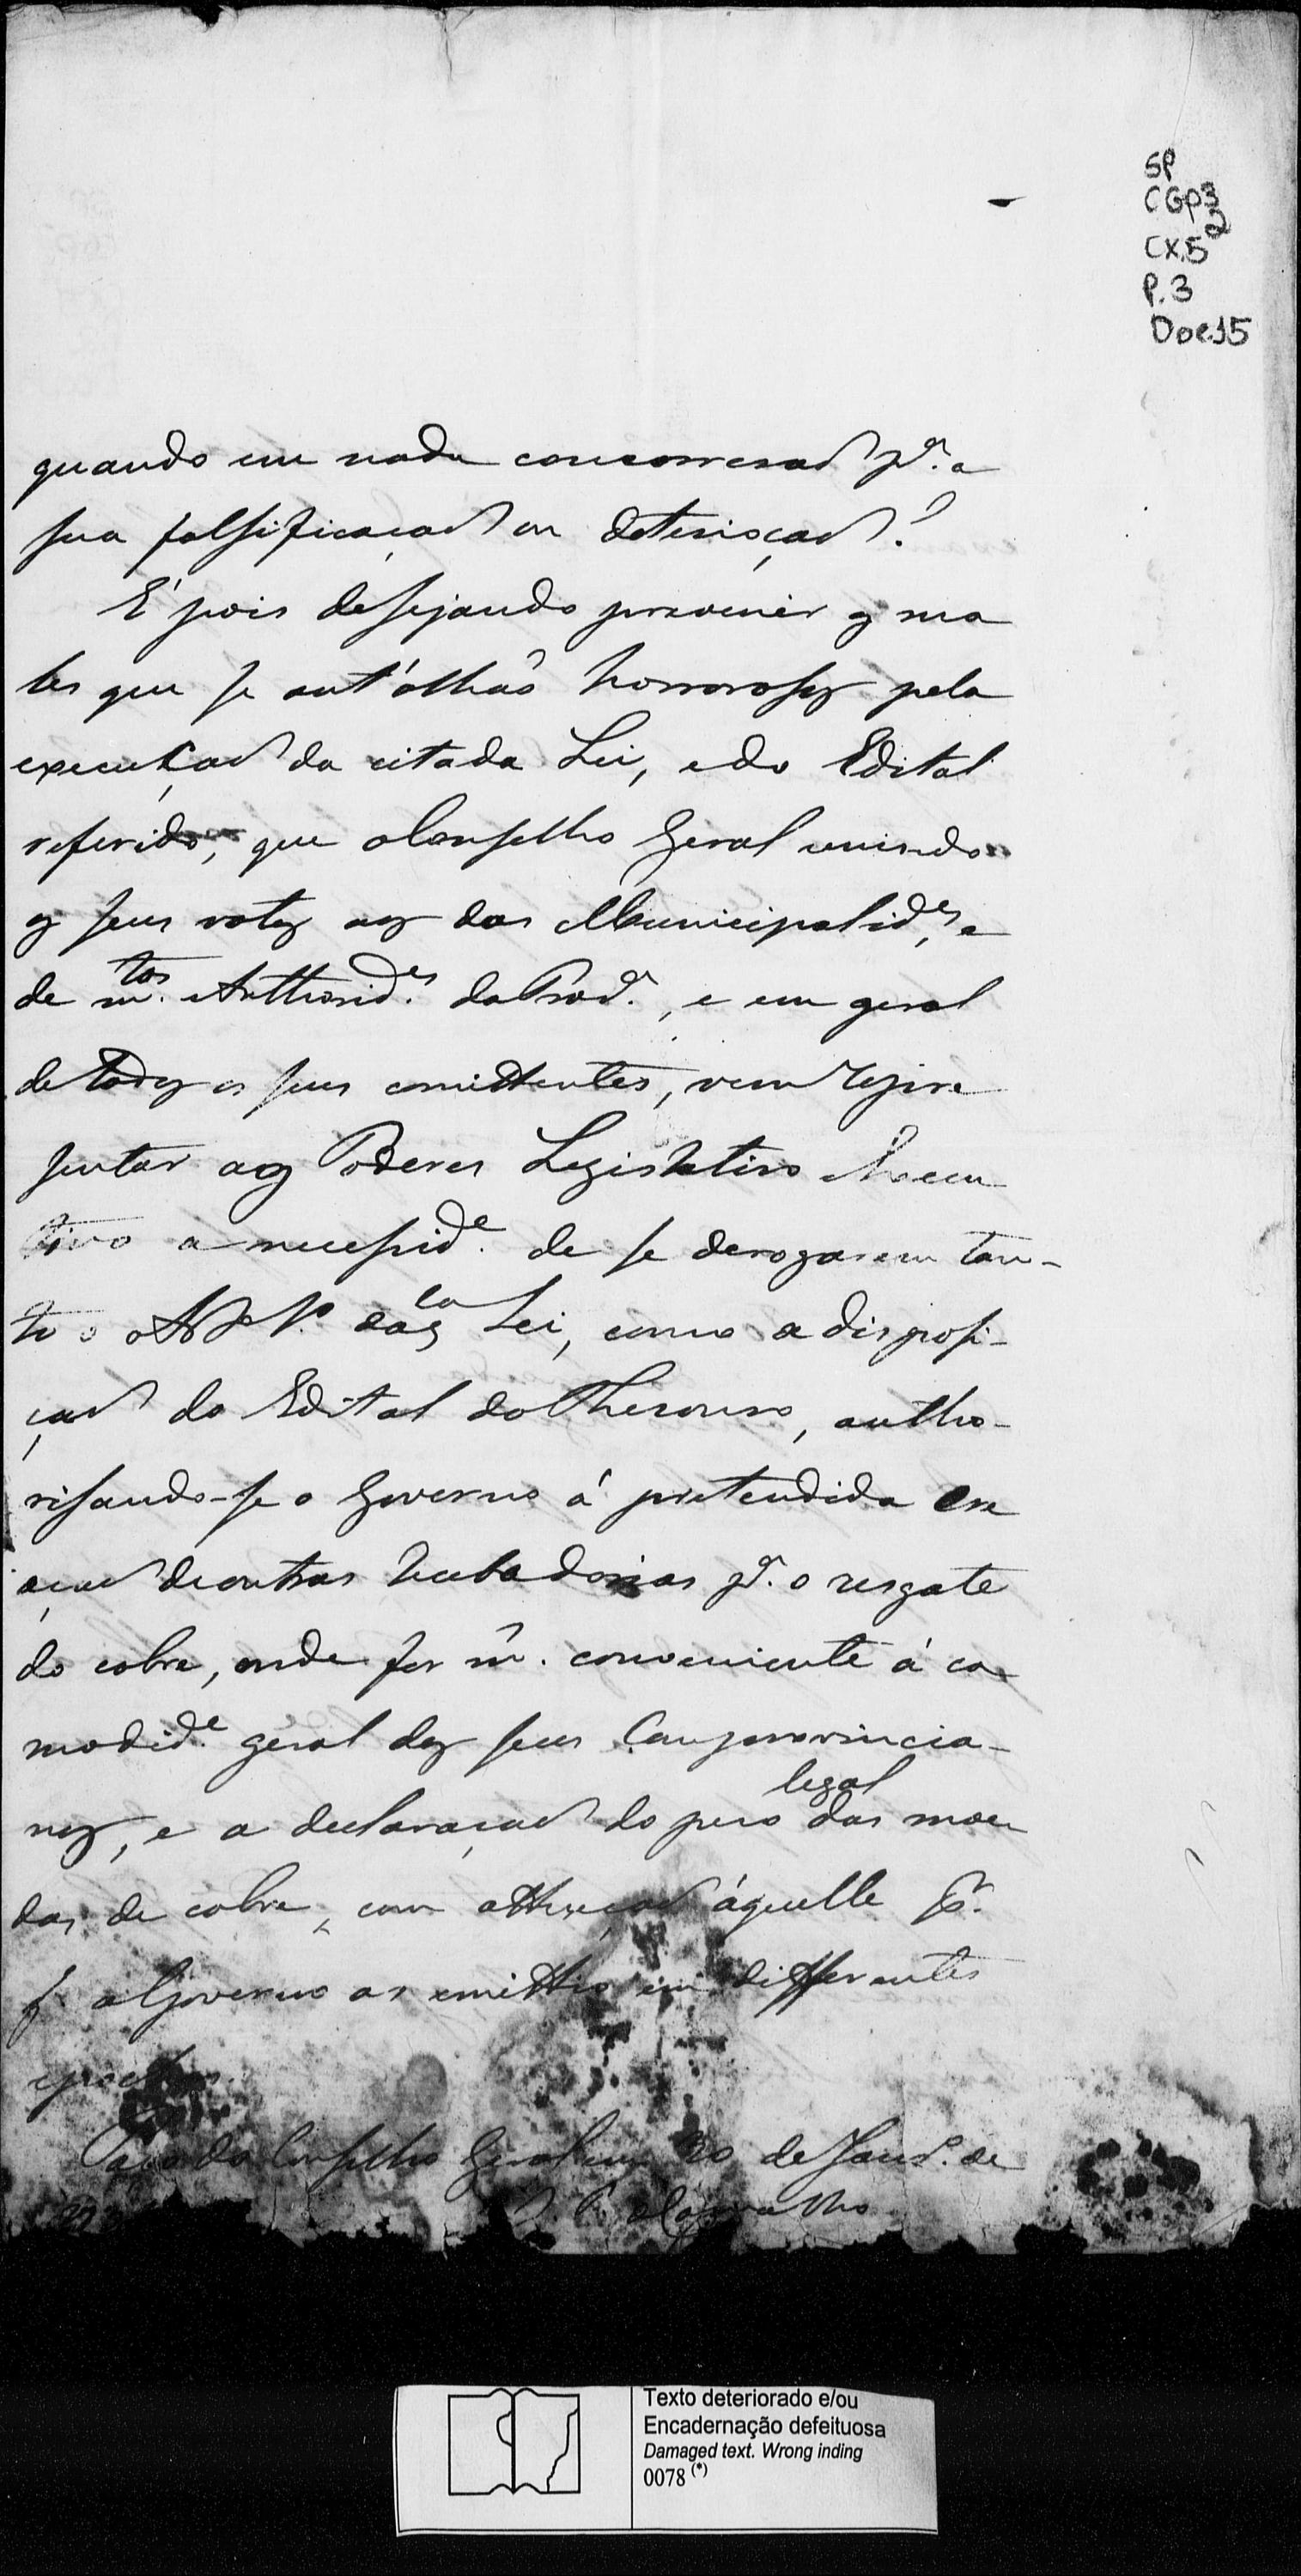 SP
CGP3
2
CX.5
P.3
Doc.15
quando em nada concorreraõ p.ª a
sua falsificaçaõ ou deterioçaõ?
É pois desejando prevenir os ma
les que se ant'olhaõ horrorosos pela
execuçaõ da citada Lei, e do Edital
referido, que o Conselho Geral unindo
os seus votos aos das Municipalid.es, e
de m.tos Authorid.es da Prov.ª, e em geral
de todos os seus comittentes, vem repre
sentar aos Poderes Legislativo e Execu
tivo a necessid.e de se derogarem tan-
to o Lei, como a disposi-
çaõ do Edital do Thesouro, autho-
risando-se o Governo á pretendida cre
açaõ de outras p.ª o resgate
do cobre, onde for m. conveniente á co
modid.e geral dos seus Comprovincia-
nos, e a declaraçaõ do peso legal das moe
das de cobre, com attençaõ áquelle
q o Governo as emittio em differentes
epochas.
Paço do Conselho Geral em 30 de Janr.º de
Carvalho
Texto deteriorado e/ou
Encadernação defeituosa
Damaged text. Wrong inding
0078 (*)